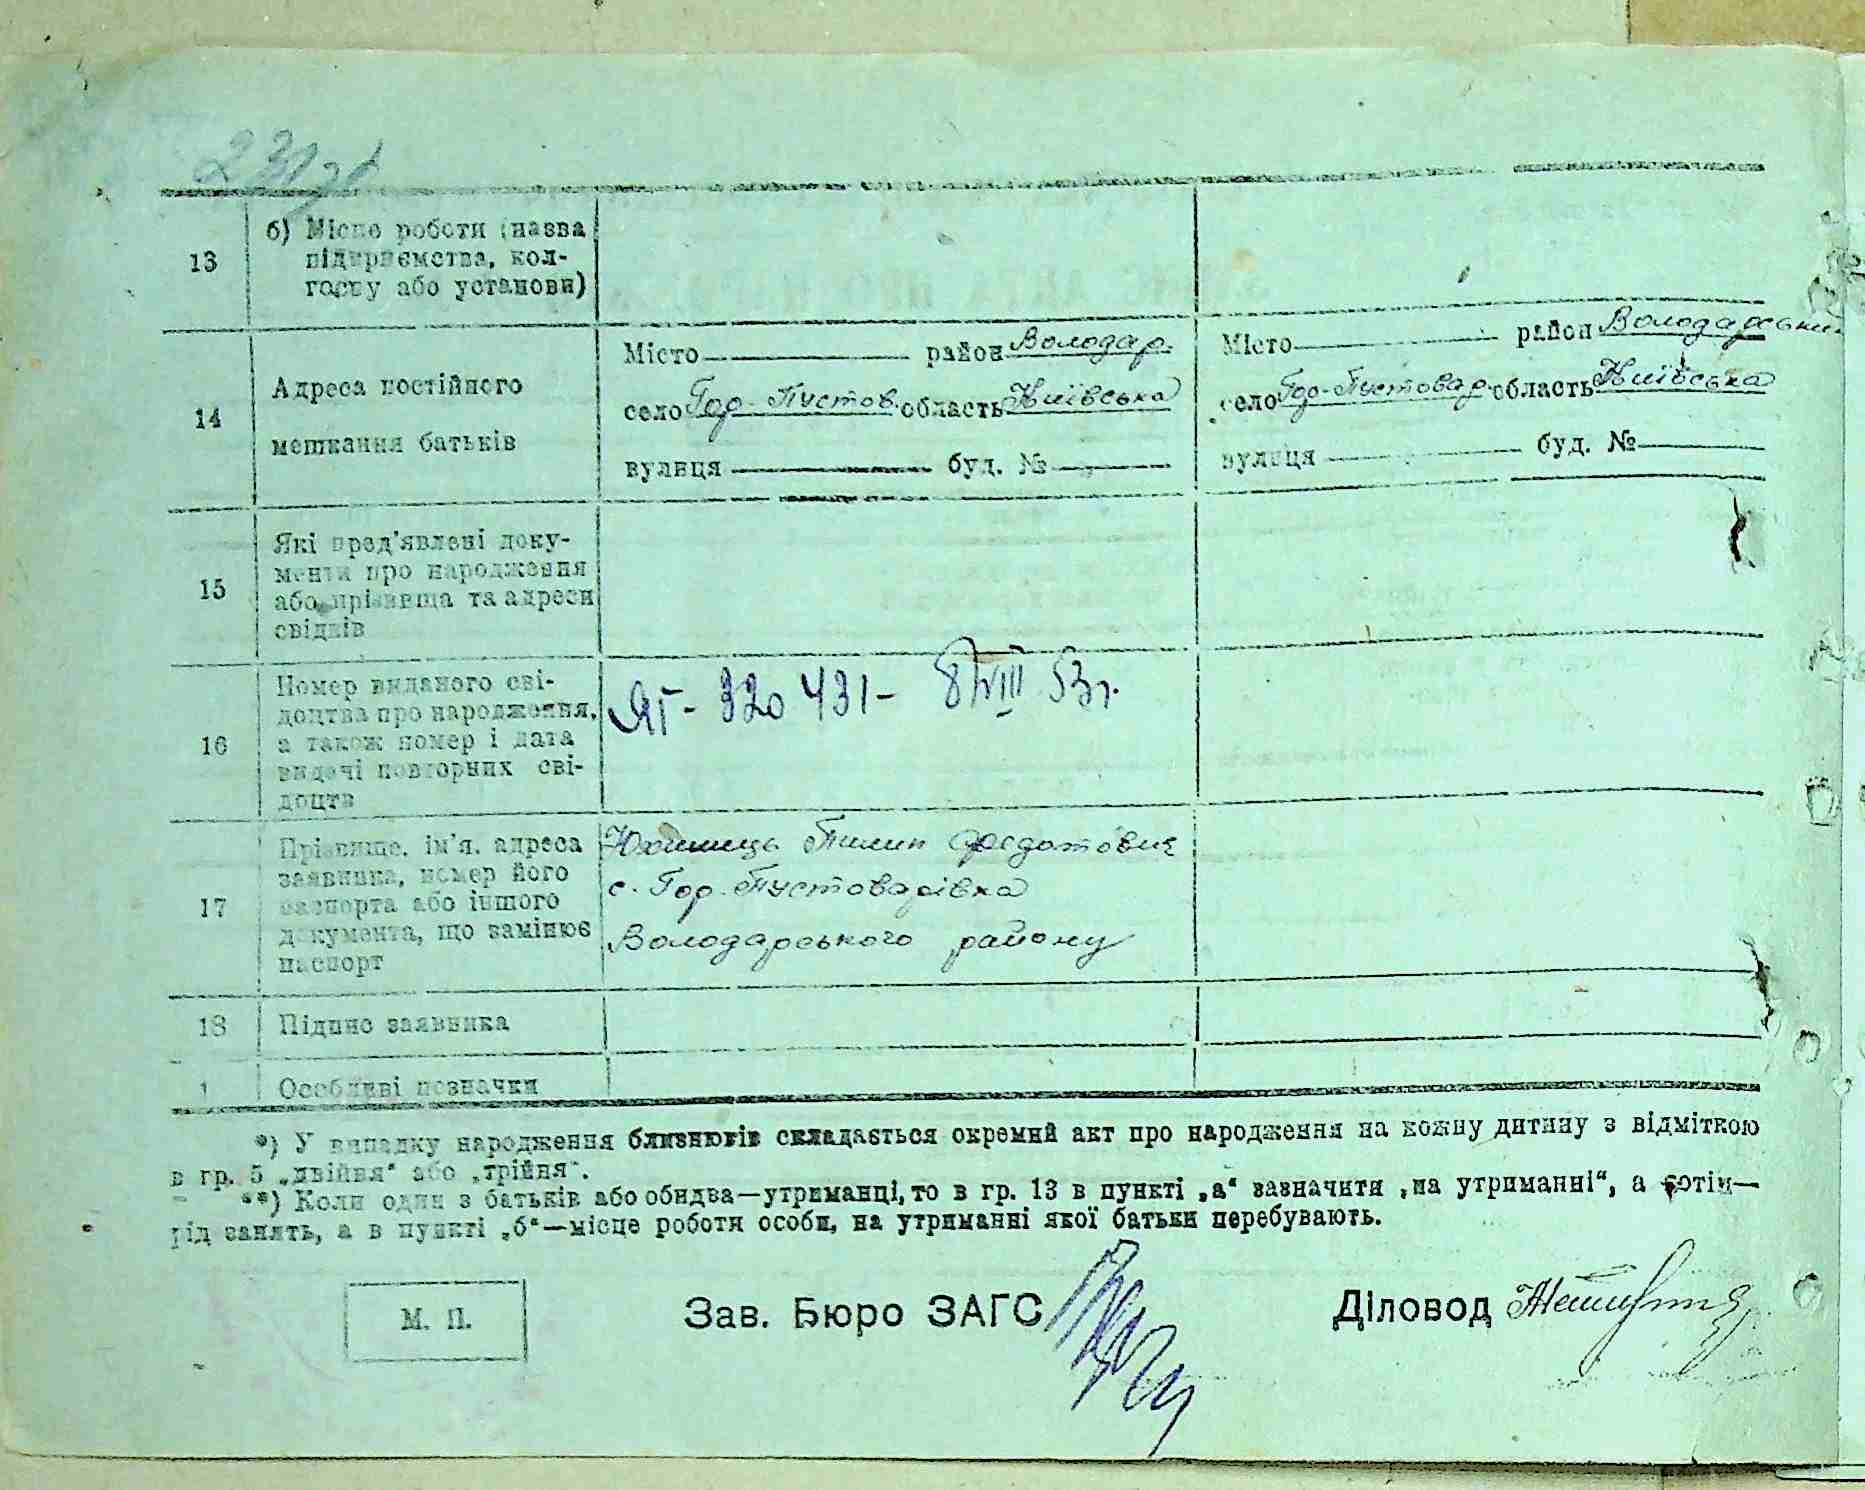 13
б) Місце роботи (назва
підприємства, кол-
госпу або установи)
14
Адреса постійного
мешкання батьків
Місто район Володар.
село Гор-Пустов. область Київська
вулиця буд. №
Місто район Володарський
село Гор-Пустовар. область Київська
вулиця буд. №
15
Які пред'явлені доку-
менти про народження
або прізвища та адреси
свідків
16
Номер виданого сві-
доцтва про народження,
а також номер і дата
видачі повторних сві-
доцтв
ЯГ- 320431- 8/VIII 53 г.
17
Прізвище, ім'я, адреса
заявника, номер його
паспорта або іншого
документа, що замінює
паспорт
Юхимець Пилип Федотович
с. Гор. Пустоварівка
Володарського району
18
Підпис заявника
1
Особливі позначки
*) У випадку народження близнюків складається окремий акт про народження на кожну дитину з відміткою
в гр. 5 „двійня“ або „трійня“.
**) Коли один з батьків або обидва—утриманці, то в гр. 13 в пункті „а“ зазначити „на утриманні“, а потім—
рід занять, а в пункті „б“—місце роботи особи, на утриманні якої батьки перебувають.
М. П.
Зав. Бюро ЗАГС
Діловод